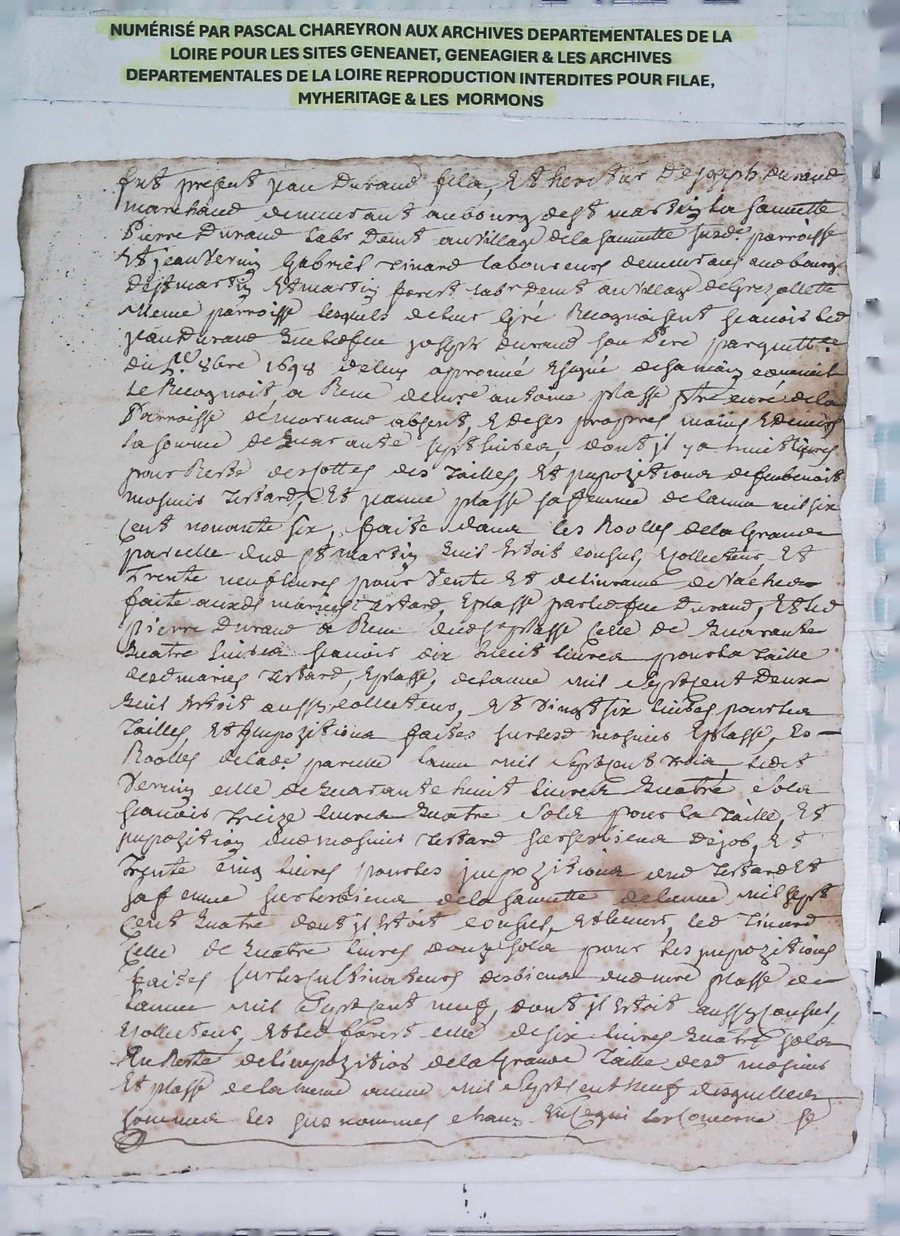 NUMÉRISÉ PAR PASCAL CHAREYRON AUX ARCHIVES DEPARTEMENTALES DE LA
LOIRE POUR LES SITES GENEANET, GENEAGIER & LES ARCHIVES
DEPARTEMENTALES DE LA LOIRE REPRODUCTION INTERDITES POUR FILAE,
MYHERITAGE & LES MORMONS
fut present jean Durand fils, Et heritier De joseph durand
marchand demeurant au bourg de st martin la sauvette
Pierre Durand labr Demt au village de la sauvette susde. parroisse
Et jean Vernin Gabriel laboureurs demeurans aud bourg
De st martin Et martin forest labr Demt au village de
meme parroisse lesquels de leur gre Recognoissent scavoir led
jean Durand que deffunt joseph durand son Pere par quittce
du 8bre 1698 de luy aprouvé & signé de sa main comme il
le Recognoit, a Receu de mre antoine plasse ptre curé de la
Parroisse de mornand absent, & de ses propres mains & deniers
la somme de quarante sept livres, dont il y a huit livres
pour Reste des cottes des Tailles, Et impozitions de feu benoist
mosnier Tertard, Et jeanne plasse sa femme de lannee mil six
cent nonante six, faite dans les Roolles de la Grande
parcelle dud st martin quil Estoit consul, & collecteur, Et
Trente neuf livres pour Vente Et delivrance de
faite auxds mariés Tertard, & plasse par led feu Durand, Et led
pierre Durand a Receu dud sr plasse celle de quarante
quatre livres scavoir dix huit livres pour la Taille
desd mariés Tertard, & plasse, de lannee mil sept cent Deux
quil Estoit aussy collecteur, Et Vingt six livres pour les
Tailles, Et Impozitions faites sur lesd mosnier & plasse, Es
Roolles de lade. parcelle lannee mil sept cent trois ledit
Vernin celle de quarante huit livres quatre sols
scavoir Treize livres quatre sols pour la Taille, Et
impozition dud mosnier Tertard sur ses biens Et
Trente cinq livres pour les impozitions dud Tertard Et
sa femme sur les biens de la sauvette de lannee mil sept
cent quatre dont il Estoit consul, led
celle de quatre livres douze sols pour les impozitions
faites sur les cultivateurs des biens dud mre plasse de
lannee mil sept cent neuf, dont il Estoit aussy consul,
& collecteur, Et led forest celle de six livres quatre sols
En Reste de limpozition de la Grande Taille desd mosnier
Et plasse de la meme annee mil sept cent neuf desquelles
sommes les sus nommes chacun En ce qui les concerne se